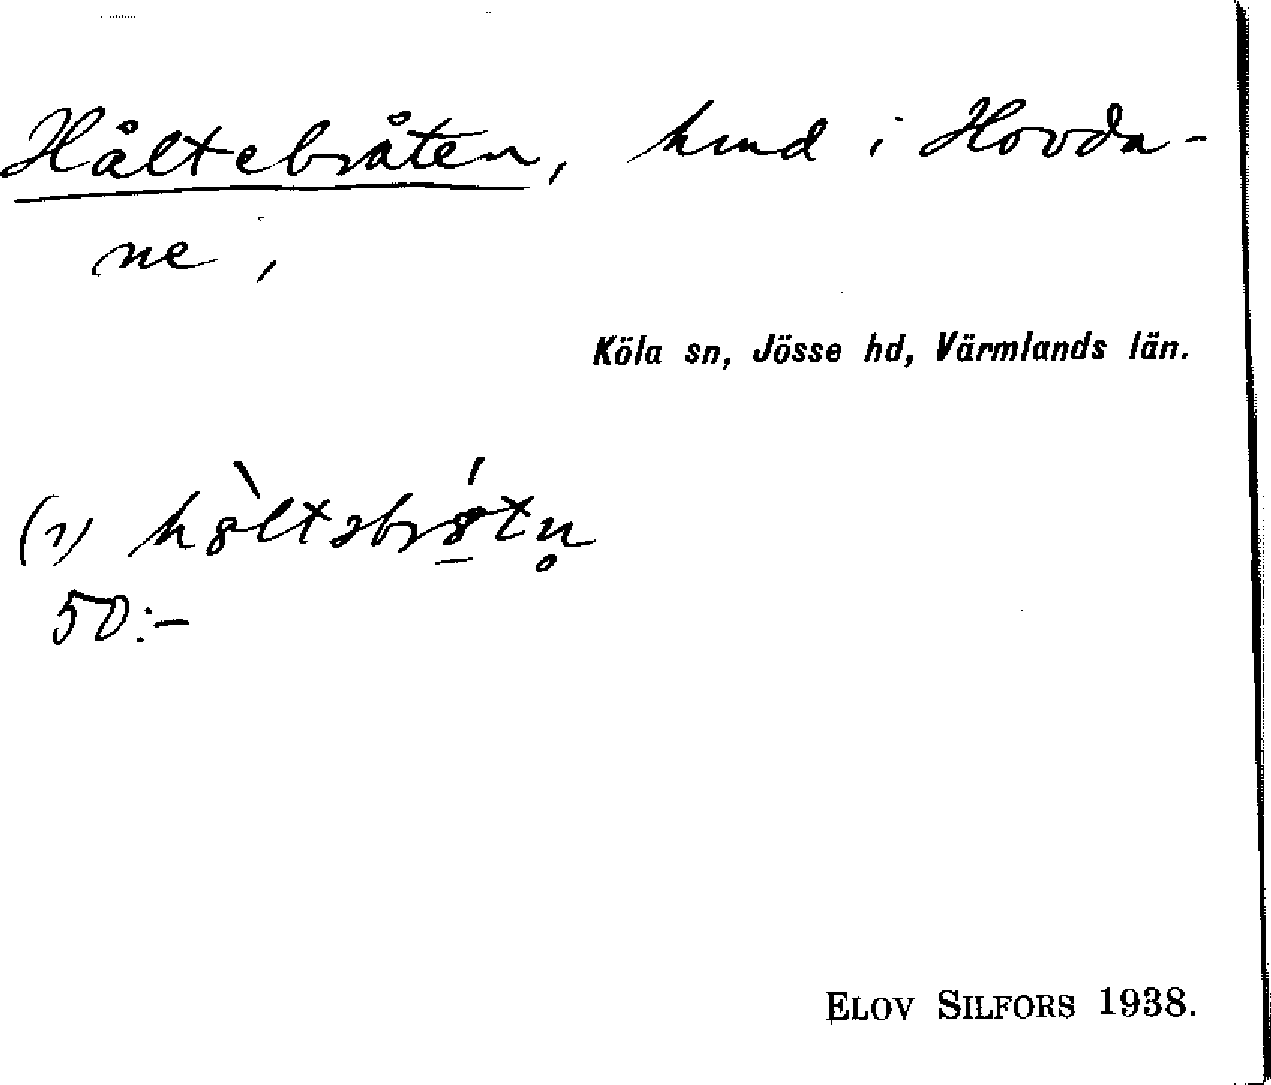 Håltebråten, hmd i Hovda-
ne,
Köla sn, Jösse hd, Värmlands län.
(1)
50:-
ELOV SILFORS 1938.